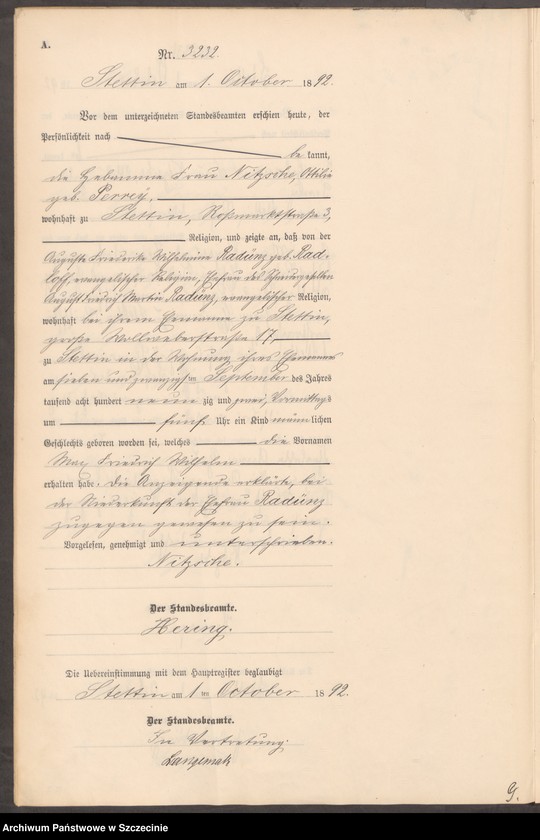 A.
Nr. 3232.
Stettin am 1. October 1892.
Vor dem unterzeichneten Standesbeamten erschien heute, der
Persönlichkeit nach
be kannt,
die Hebamme Frau Nitzsche, Ottilie
geb. Perrey,
wohnhaft zu Stettin, Roßmarktstraße 3,
Religion, und zeigte an, daß von der
Auguste Friederike Wilhelmine Radünz geb. Rad-
loff, evangelischer Religion, Ehefrau des
August Friedrich Martin Radünz, evangelischer Religion,
wohnhaft bei ihrem Ehemanne zu Stettin,
große Wollweberstraße 17,
zu Stettin in der Wohnung ihres Ehemannes
am sieben und zwanzigsten September des Jahres
tausend acht hundert neun zig und zwei, Vormittags
um fünf Uhr ein Kind männ lichen
Geschlechts geboren worden sei, welches die Vornamen
Max Friedrich Wilhelm
erhalten habe. Die Anzeigende erklärte, bei
der Niederkunft der Ehefrau Radünz
zugegen gewesen zu sein.
Vorgelesen, genehmigt und unterschrieben.
Nitzsche.
Der Standesbeamte.
Hering.
Die Uebereinstimmung mit dem Hauptregister beglaubigt
Stettin am 1 ten October 1892.
Der Standesbeamte.
In Vertretung.
Langemak
Archiwum Państwowe w Szczecinie